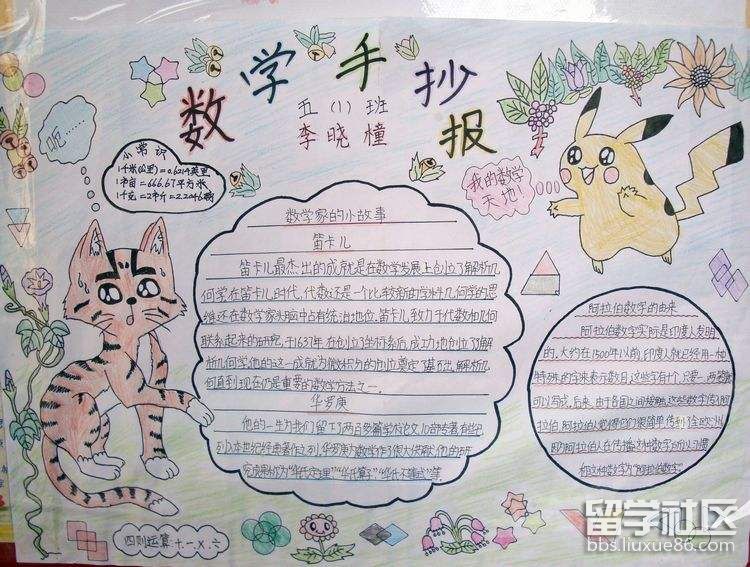 数学手抄报
五(1)班
李晓橦
呃……
小常识
1千米(公里)=0.6214英里
1市亩=666.67平方米
1千克=2市斤=2.2046磅
我的数学
天地!
数学家的小故事
笛卡儿
笛卡儿最杰出的成就是在数学发展上创立了解析几
何学在笛卡儿时代,代数还是一个比较新的学科几何学的思
维还在数学家头脑中占有统治地位.笛卡儿致力于代数和几何
联系起来的研究,于1637年,在创立了坐标系后,成功地创立了解
析几何学.他的这一成就为微积分的创立奠定了基础,解析几
何直到现在仍是重要的数学方法之一.
华罗庚
他的一生为我们留下了两百多篇学术论文,10部专著,有些
列为本世纪经典著作之列.华罗庚为数学作了很大贡献,他的
究成果被称为"华氏定理""华氏算子""华氏不等式"等.
阿拉伯数字的由来
阿拉伯数字实际是印度人发明
的,大约在1500年以前,印度人就已经用一种
特殊的字来表示数目,这些字有十个,只要一两笔就
可以写成.后来,由于各国之间接触,这些数字传
阿拉伯,阿拉伯人觉得它们很简单传到全欧洲,
因为阿拉伯人在传播,
称这种数字为"阿拉伯数字"
四则运算:+、-、×、÷
留学社区
bbs.liuxue86.com